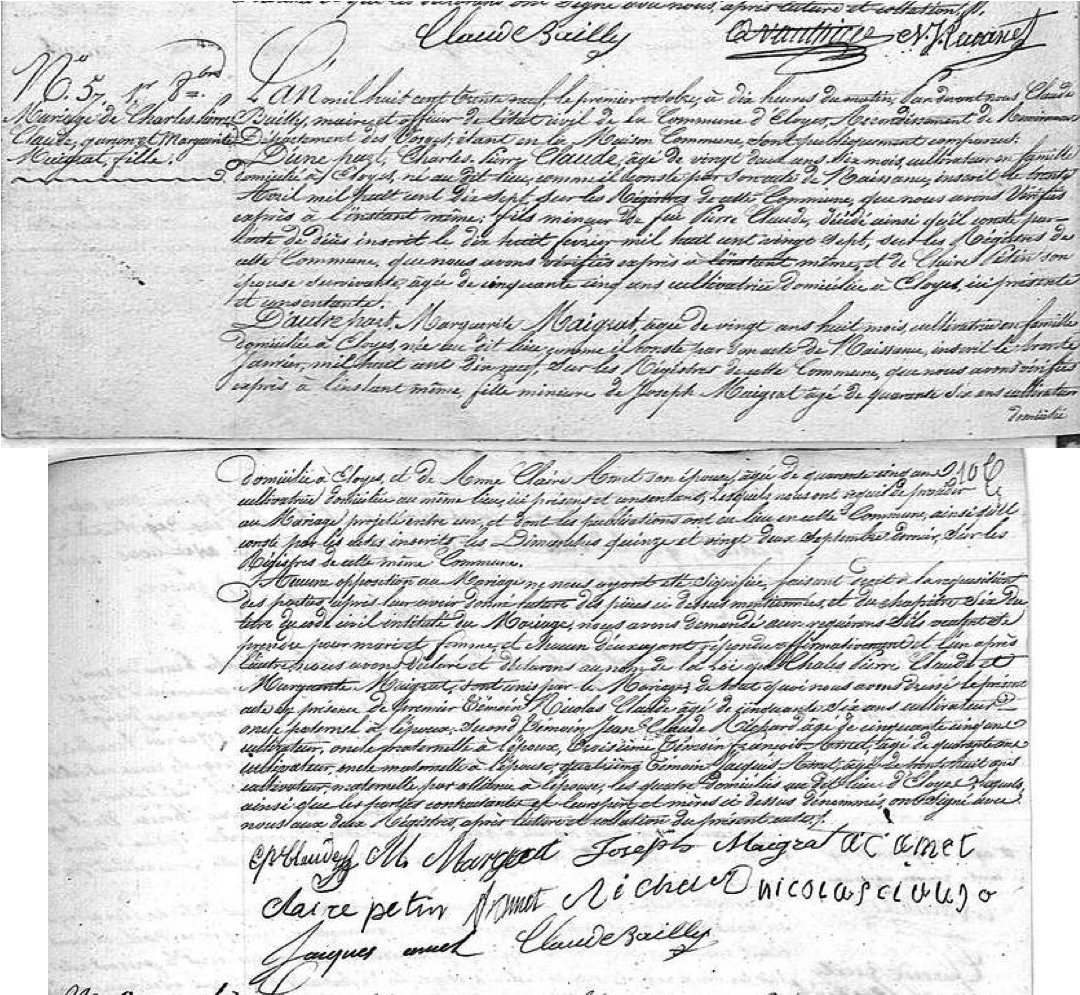 après lecture et collation.
Claude Bailly
N. J. Ravanel
N.º 5, 1.er 8.bre
Mariage de Charles Pierre
Claude, garçon et Marguerite
Maigrat, fille.
L'An mil huit cent trente neuf, le premier octobre, à dix heures du matin, Pardevant nous Claude
Bailly, maire et officier de l'état civil de la Commune d'Eloyes, Arrondissement de Remiremont
Département des Vosges, étant en la Maison Commune, sont publiquement comparus:
D'une part, Charles Pierre Claude, âgé de vingt deux ans six mois, cultivateur en famille
domicilié à Eloyes, né au dit lieu, comme il conste par son acte de Naissance, inscrit le trente
Avril mil huit cent dix sept sur les Registres de cette Commune, que nous avons vérifiés
exprès à l'instant même; fils mineur de feu Pierre Claude, décédé ainsi qu'il conste par
l'acte de décès inscrit le dix huit février mil huit cent vingt sept, sur les Registres de
cette Commune, que nous avons vérifiés exprès à l'instant même, et de Claire Petin son
épouse survivante, âgée de cinquante cinq ans cultivatrice domiciliée à Eloyes, ici présente
et consentante.
D'autre part, Marguerite Maigrat, âgée de vingt ans huit mois, cultivatrice en famille
domiciliée à Eloyes, née au dit lieu, comme il conste par son acte de Naissance, inscrit le trente
Janvier, mil huit cent dix neuf, sur les Registres de cette Commune, que nous avons vérifiés
exprès à l'instant même, fille mineure de Joseph Maigrat âgé de quarante six ans cultivateur
domicilié
domicilié à Eloyes, et de Anne Claire Amet son épouse, âgée de quarante cinq ans
cultivatrice domiciliée au même lieu, ici présens et consentans, Lesquels nous ont requis de procéder
au Mariage projeté entre eux, et dont les publications ont eu lieu en cette Commune, ainsi qu'il
conste par les actes inscrits les Dimanches quinze et vingt deux Septembre dernier, sur les
Régistres de cette même Commune.
Aucune opposition au Mariage ne nous ayant été signifiée, faisant droit à la requisition
des parties, après leur avoir donné lecture des pièces ci dessus mentionnées, et du chapitre Six du
titre du code civil intitulé du Mariage, nous avons demandé aux requérans s'ils veulent se
prendre pour mari et femme, et chacun d'eux ayant répondu affirmativement et l'un après
l'autre, nous avons déclaré et déclarons au nom de la loi que Charles Pierre Claude et
Marguerite Maigrat, sont unis par le Mariage; de tout quoi nous avons dressé le présent
acte en présence de Premier Témoin Nicolas Claude âgé de cinquante six ans cultivateur
oncle paternel à l'époux, Second Témoin Jean Claude Richard âgé de cinquante cinq ans
cultivateur, oncle maternelle à l'époux, Troisième Témoin françois Amet, âgé de quarante ans
cultivateur, oncle maternelle à l'épouse, quatrième Témoin Jacques Amet, âgé de trente huit ans
cultivateur, maternelle par alliance à l'épouse, les quatre domiciliés au dit lieu d'Eloyes, lesquels
ainsi que les parties contractantes et leurs père et mères ci dessus dénommés, ont signé avec
nous aux deux Régistres, après lecture et collation du présent acte.
Cp Claude M. Margrat Joseph Maigrat a c amet
claire petin f amet Richard nicolas claude
Jacques amet Claude Bailly